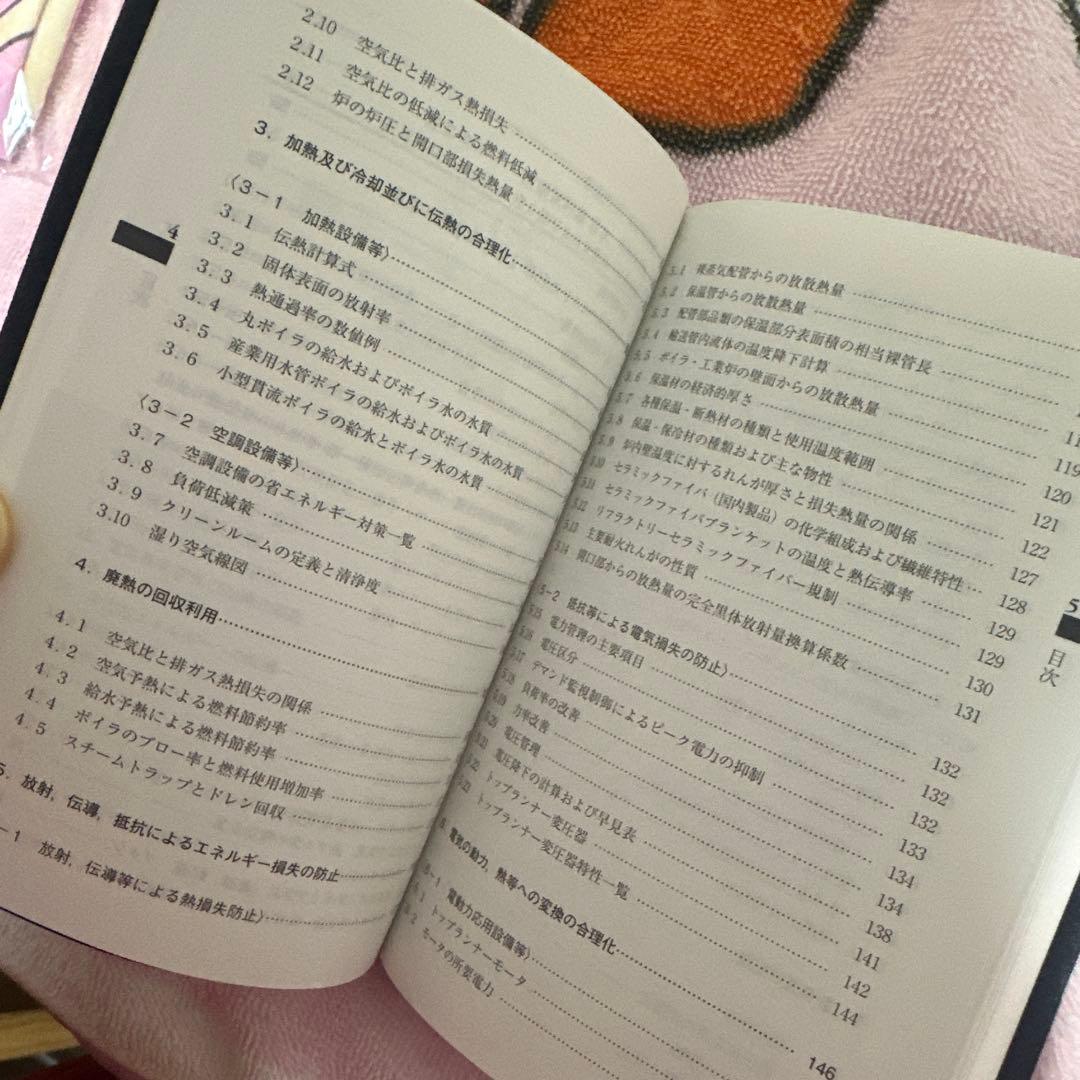 2.10 空気比と排ガス熱損失
2.11 空気比の低減による燃料低減
2.12 炉の炉圧と開口部損失熱量
3. 加熱及び冷却並びに伝熱の合理化
〈3－1 加熱設備等〉
3.1 伝熱計算式
3.2 固体表面の放射率
3.3 熱通過率の数値例
3.4 丸ボイラの給水およびボイラ水の水質
3.5 産業用水管ボイラの給水およびボイラ水の水質
3.6 小型貫流ボイラの給水とボイラ水の水質
〈3－2 空調設備等〉
3.7 空調設備の省エネルギー対策一覧
3.8 負荷低減策
3.9 クリーンルームの定義と清浄度
3.10 湿り空気線図
4. 廃熱の回収利用
4.1 空気比と排ガス熱損失の関係
4.2 空気予熱による燃料節約率
4.3 給水予熱による燃料節約率
4.4 ボイラのブロー率と燃料使用増加率
4.5 スチームトラップとドレン回収
5. 放射，伝導，抵抗によるエネルギー損失の防止
－1 放射，伝導等による熱損失防止〉
4
5.1 裸蒸気配管からの放散熱量
5.2 保温管からの放散熱量
5.3 配管部品類の保温部分表面積の相当裸管長
5.4 輸送管内流体の温度降下計算
5.5 ボイラ・工業炉の壁面からの放散熱量 119
5.6 保温材の経済的厚さ 120
5.7 各種保温・断熱材の種類と使用温度範囲 121
5.8 保温・保冷材の種類および主な物性 122
5.9 炉内壁温度に対するれんが厚さと損失熱量の関係 127
5.10 セラミックファイバ（国内製品）の化学組成および繊維特性 128
5.11 セラミックファイバブランケットの温度と熱伝導率 129
5.12 リフラクトリーセラミックファイバー規制 129
5.13 主要耐火れんがの性質 130
5.14 開口部からの放熱量の完全黒体放射量換算係数 131
5－2 抵抗等による電気損失の防止〉
5.15 電力管理の主要項目 132
5.16 電圧区分 132
5.17 デマンド監視制御によるピーク電力の抑制 132
5.18 負荷率の改善 133
5.19 力率改善 134
5.20 電圧管理 134
5.21 電圧降下の計算および早見表 138
5.22 トップランナー変圧器 141
5.23 トップランナー変圧器特性一覧 142
6. 電気の動力，熱等への変換の合理化 144
6－1 電動力応用設備等〉
6.1 トップランナーモータ 146
6.2 モータの所要電力
5
目次